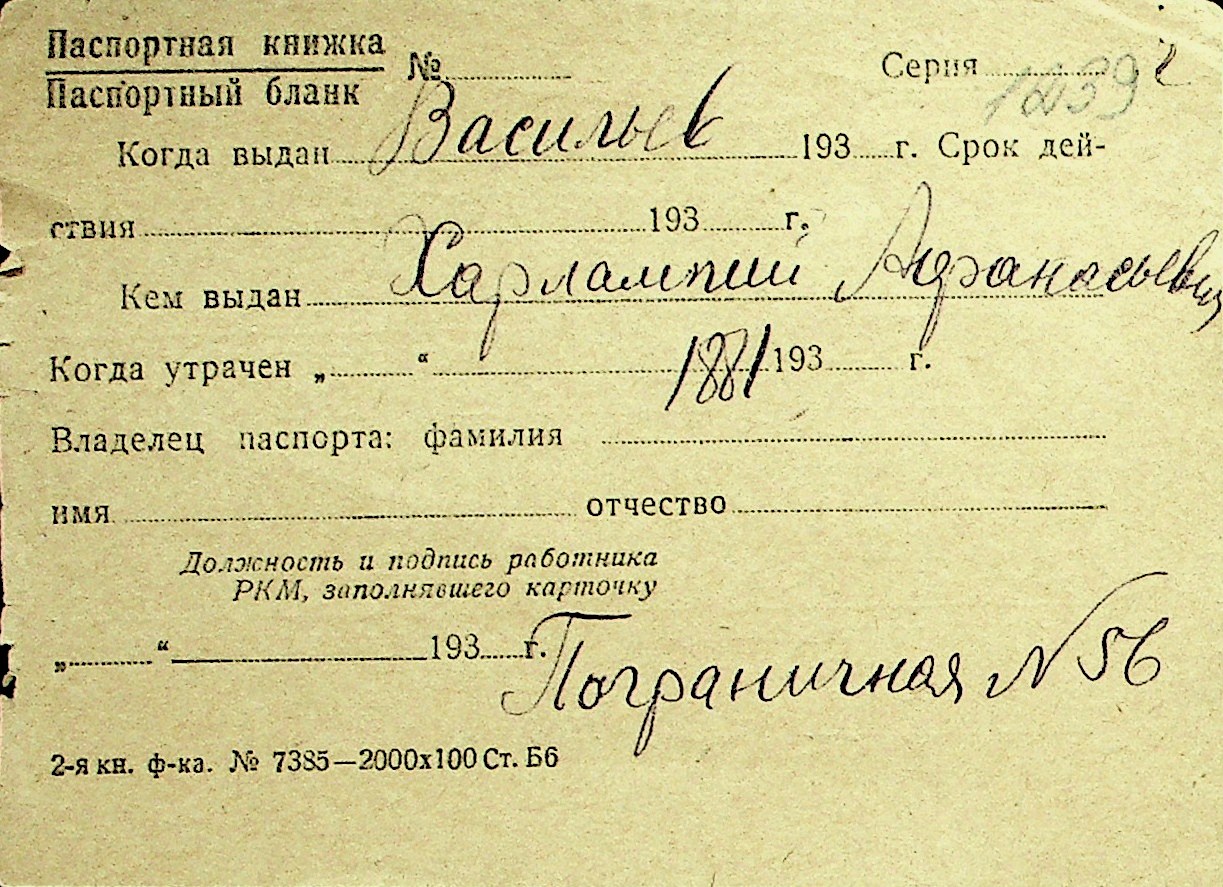 Паспортная книжка
Паспортный бланк
№ Серия 1239
Когда выдан Васильев 193 г. Срок дей-
ствия 193 г.
Кем выдан Харлампий Афанасьевич
Когда утрачен „ “ 1881 193 г.
Владелец паспорта: фамилия
имя отчество
Должность и подпись работника
РКМ, заполнявшего карточку
„ “ 193 г.
Пограничная № 56
2-я кн. ф-ка. № 7385—2000х100 Ст. Б6